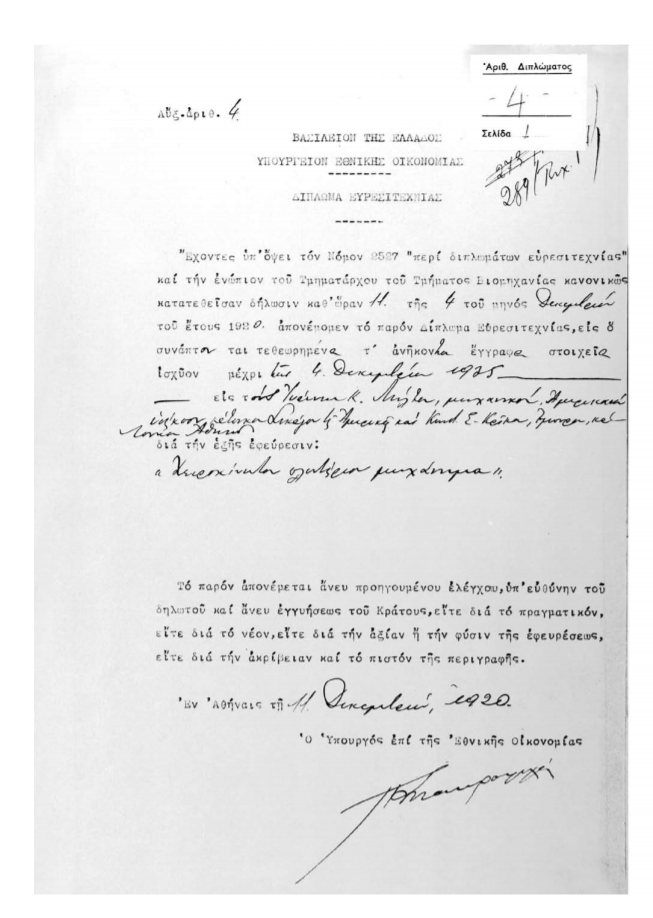 Ἀριθ. Διπλώματος
- 4 -
Σελίδα 1
Αὔξ.ἀριθ. 4
289
ΒΑΣΙΛΕΙΟΝ ΤΗΣ ΕΛΛΑΔΟΣ
ΥΠΟΥΡΓΕΙΟΝ ΕΘΝΙΚΗΣ ΟΙΚΟΝΟΜΙΑΣ
---------
ΔΙΠΛΩΜΑ ΕΥΡΕΣΙΤΕΧΝΙΑΣ
-------
Ἔχοντες ὑπ'ὄψει τόν Νόμον 2527 "περί διπλωμάτων εὑρεσιτεχνίας"
καί τήν ἐνώπιον τοῦ Τμηματάρχου τοῦ Τμήματος Βιομηχανίας κανονικῶς
κατατεθεῖσαν δήλωσιν καθ'ὥραν 11. τῆς 4 τοῦ μηνός Δεκεμβρίου
τοῦ ἔτους 1920. ἀπονέμομεν τό παρόν Δίπλωμα Εὑρεσιτεχνίας,εἰς ὅ
συνάπτον ται τεθεωρημένα τ' ἀνήκοντα ἔγγραφα στοιχεῖα
ἰσχῦον μέχρι τῆς 4. Δεκεμβρίου 1935
εἰς τούς Ἰωάννην Κ. μηχανικόν, Ἀμερικανόν
ὑπήκοον, κάτοικον Σικάγου τῆς Ἀμερικῆς καί Κωνστ. Σ. ἔμπορον, κά-
τοικον Ἀθηνῶν
διά τήν ἑξῆς ἐφεύρεσιν:
"Χειροκίνητον μηχάνημα".
Τό παρόν ἀπονέμεται ἄνευ προηγουμένου ἐλέγχου,ὑπ'εὐθύνην τοῦ
δηλωτοῦ καί ἄνευ ἐγγυήσεως τοῦ Κράτους,εἴτε διά τό πραγματικόν,
εἴτε διά τό νέον,εἴτε διά τήν ἀξίαν ἤ τήν φύσιν τῆς ἐφευρέσεως,
εἴτε διά τήν ἀκρίβειαν καί τό πιστόν τῆς περιγραφῆς.
Ἐν Ἀθήναις τῇ 11. Δεκεμβρίου, 1920.
Ὁ Ὑπουργός ἐπί τῆς Ἐθνικῆς Οἰκονομίας